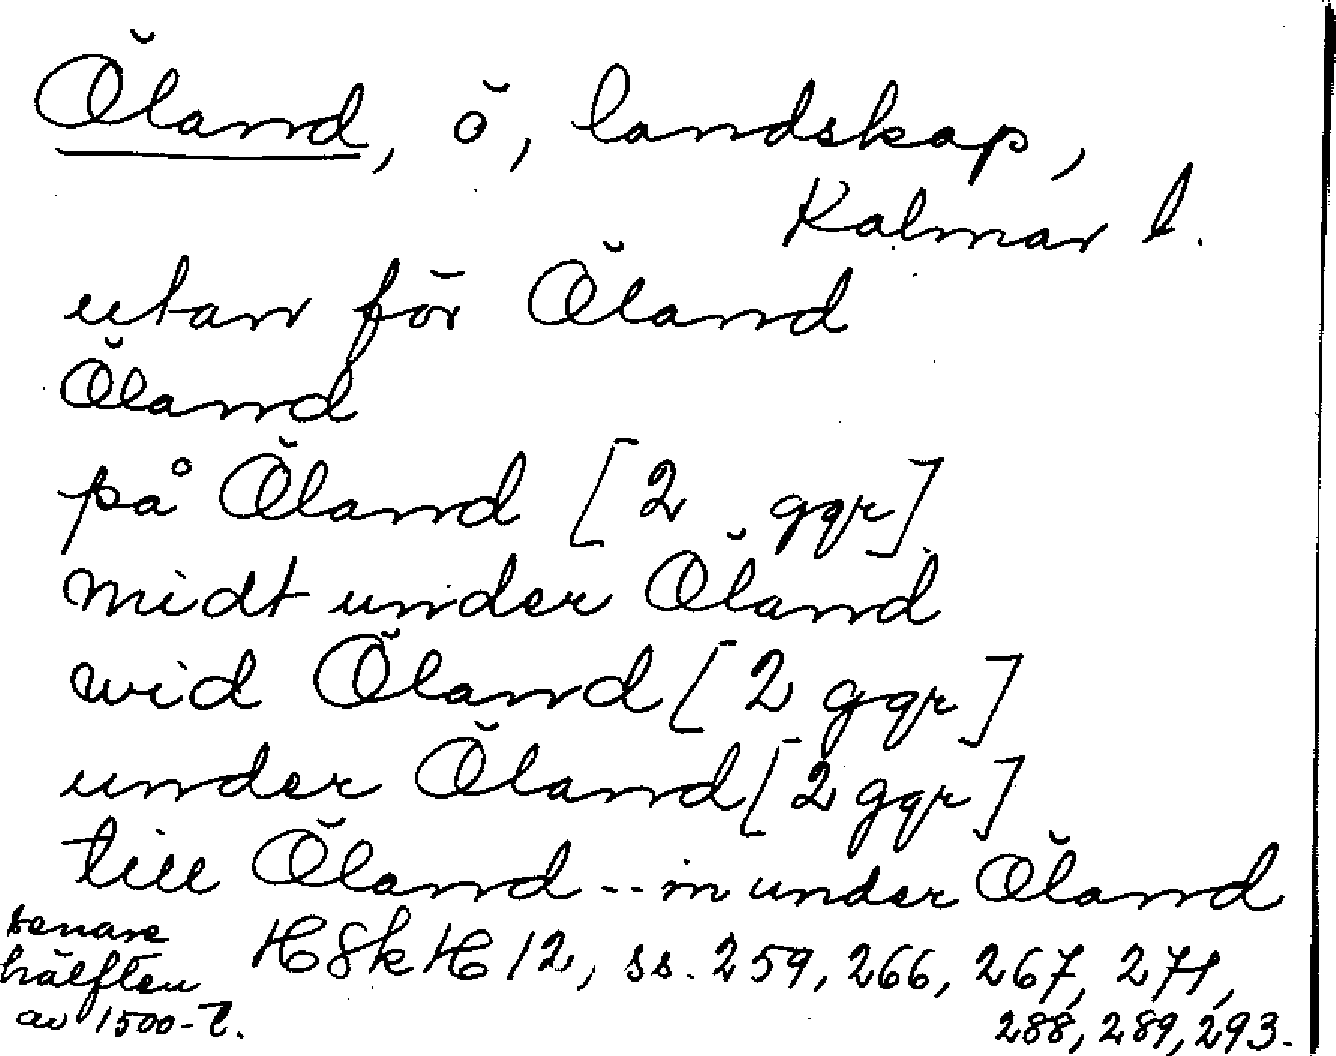 Öland, ö, landskap,
Kalmar l.
utan för Öland
Öland
på Öland [2 ggr]
midt under Öland
wid Öland [2 ggr]
under Öland [2 ggr]
till Öland -- in under Öland
senare
hälften
av 1500-t.
HSkH 12, ss. 259, 266, 267, 271,
288, 289, 293.